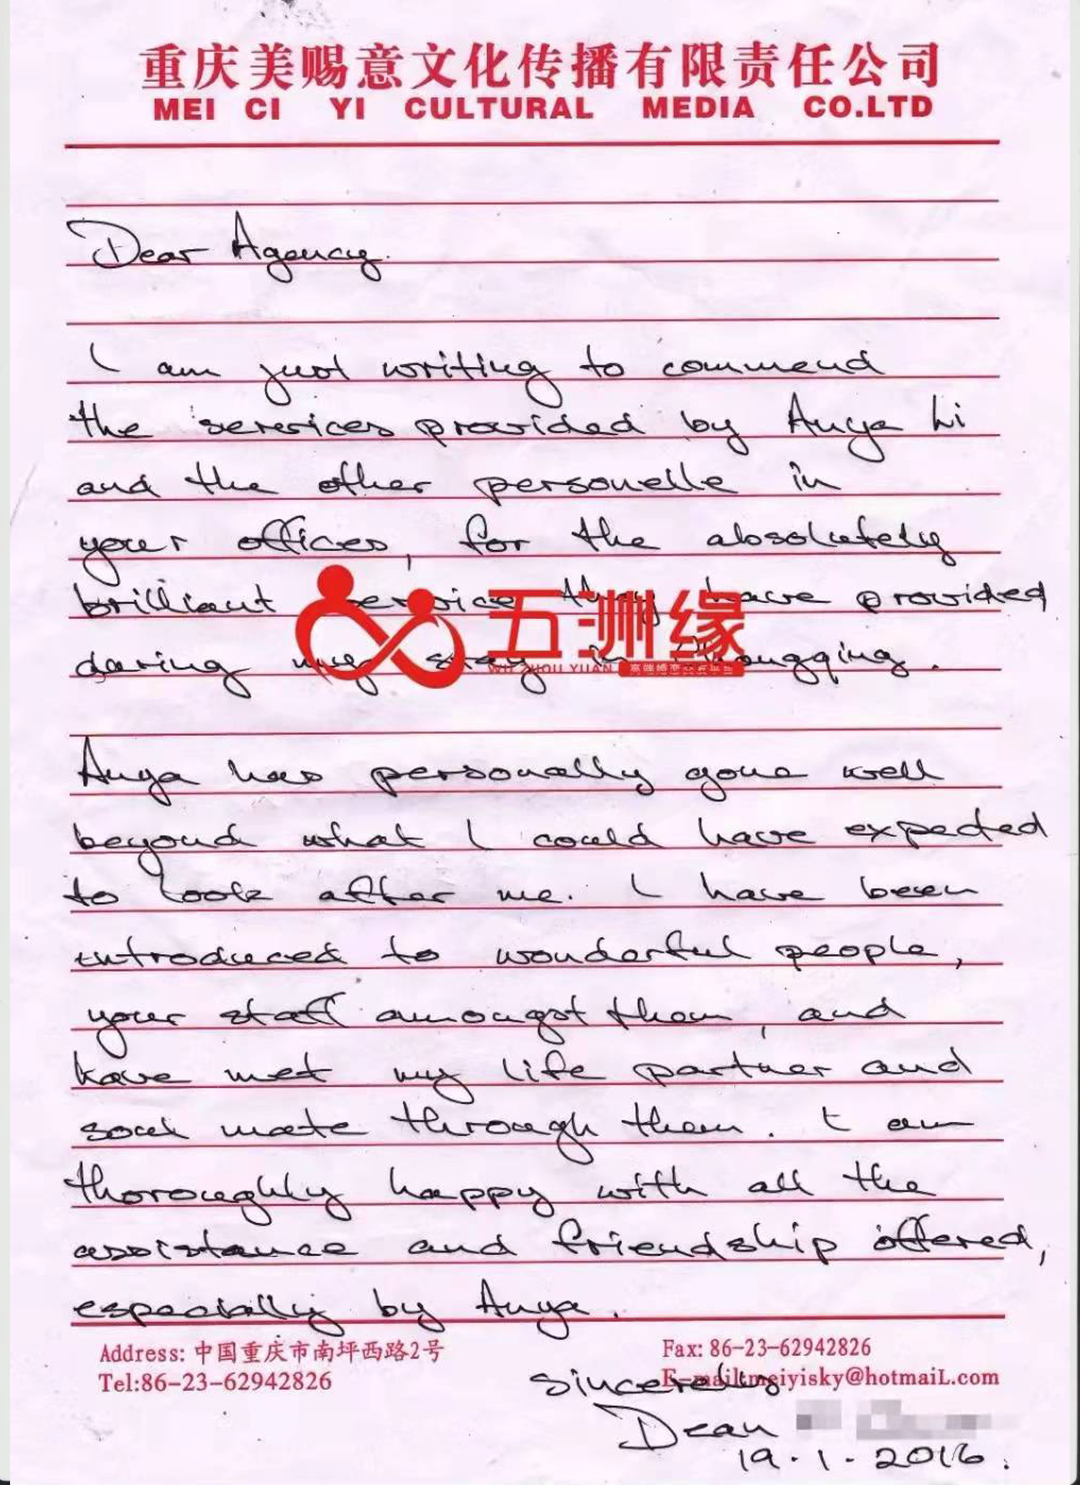 重庆美赐意文化传播有限责任公司
MEI CI YI CULTURAL MEDIA CO.LTD
Dear Agency.
I am just writing to commend
the services provided by Anya Li
and the other personelle in
your offices, for the absolutely
brilliant service they have provided
五洲缘
WU ZHOU YUAN
during my stay in Chongqing.
Anya has personally gone well
beyond what I could have expected
to look after me. I have been
introduced to wonderful people,
your staff amongst them, and
have met my life partner and
soul mate through them. I am
thoroughly happy with all the
assistance and friendship offered,
especially by Anya.
Address: 中国重庆市南坪西路2号 Fax: 86-23-62942826
Tel:86-23-62942826 E-mail:meiyisky@hotmaiL.com
Sincerely
Dean
19.1.2016.